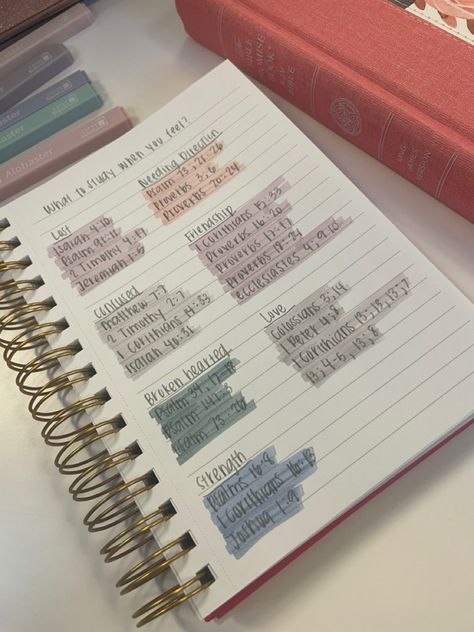 What to Study When You Feel?
Lost
Isaiah 41:10
Psalm 91:11
2 Timothy 4:17
Jeremiah 1:5
Needing Direction
Psalm 73, 21-26
Proverbs 3, 6
Proverbs 20:24
Friendship
1 Corinthians 15:33
Proverbs 16:20
Proverbs 17:17
Proverbs 18:24
Ecclesiastes 4, 9-10
Confused
Matthew 7:7
2 Timothy 2:7
1 Corinthians 14:33
Isaiah 40:31
Love
Colossians 3:14
1 Peter 4:8
1 Corinthians 13:13, 13:7
13:4-5, 13:8
Broken hearted
Psalm 34, 17-18
Psalm 147:3
Psalm 73:26
Strength
Psalms 16:8
1 Corinthians 16:13
Joshua 1:9
Alabaster
THE
BIBLE
PROMISE
BOOK
KJV
BIBLE